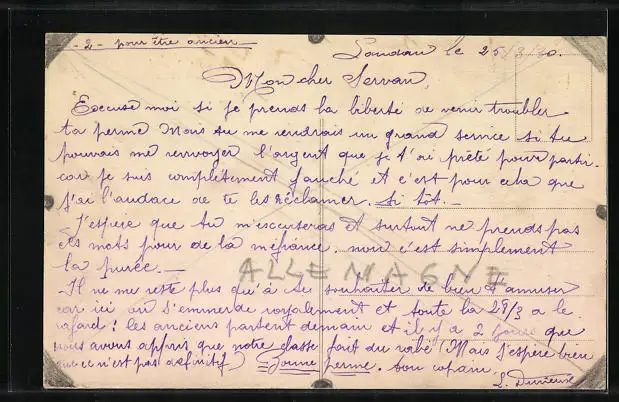 -2- pour être ancien
Landau le 25/3/30.
Mon cher Servan,
Excuse moi si je prends la liberté de venir troubler
ta perme Mais tu me rendrais un grand service si tu
pouvais me renvoyer l'argent que je t'ai prêté pour partir
car je suis complètement fauché et c'est pour cela que
j'ai l'audace de te les réclamer. si tôt. -
J'espère que tu m'excuseras et surtout ne prends pas
ces mots pour de la méfiance. non c'est simplement
la purée. -
ALLEMAGNE
Il ne me reste plus qu'à te souhaiter de bien t'amuser
car ici on s'emmerde royalement et toute la 29/3 a le
cafard! les anciens partent demain et il y a 2 jours que
nous avons appris que notre classe fait du rabé (Mais j'espère bien
que ce n'est pas définitif) Bonne perme. ton copain.